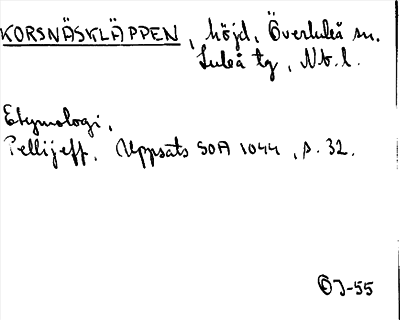 KORSNÄSKLÄPPEN, höjd, Överluleå sn.
Luleå tg, Nb.l.
Etymologi,
Pellijeff, Uppsats SOA 1044, s. 32.
ÖJ-55